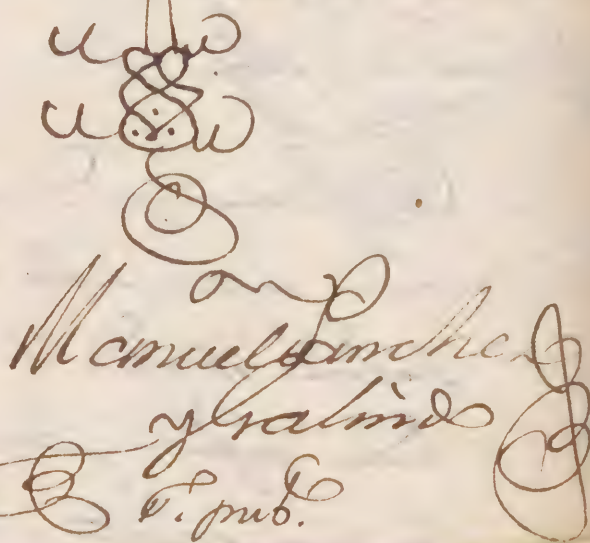 Manuel Sanchez
y Galindo
E. pub.